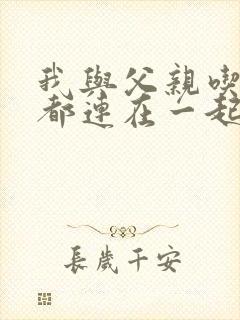 我與父親喫
都連在一起
長歲千安